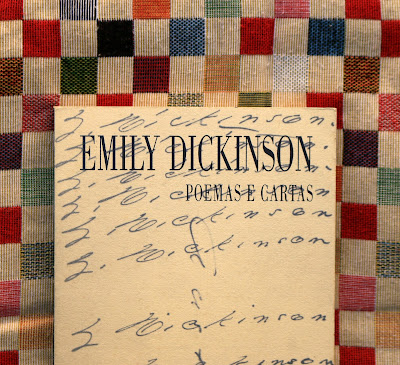 E. Dickinson.
EMILY DICKINSON
E. Dickinson
POEMAS E CARTAS
E. Dickinson
E. Dickinson
E. Dickinson
Dickinson